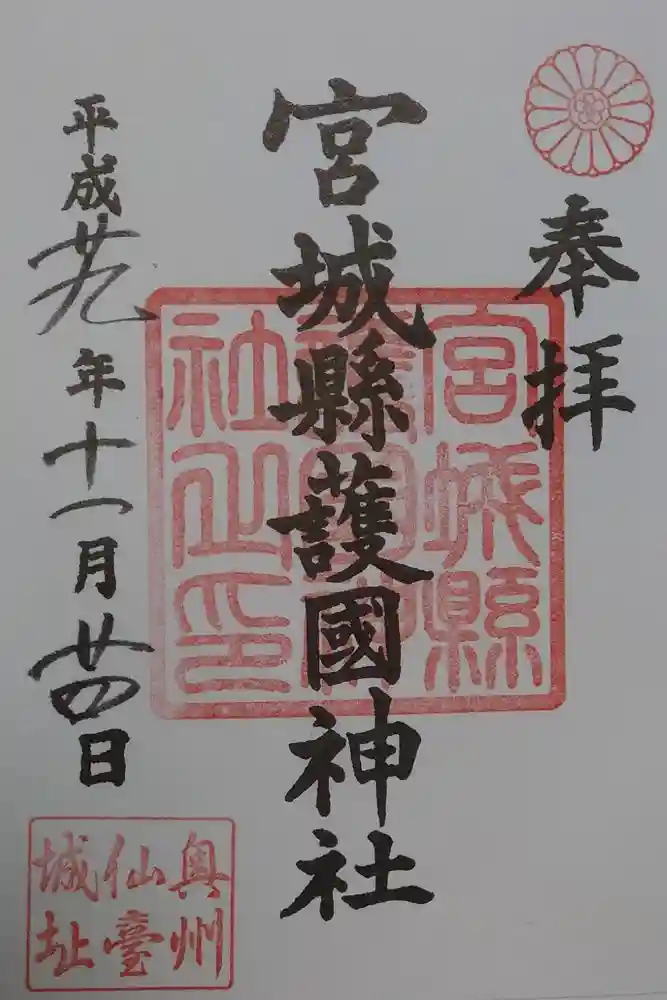 奉拝
宮城縣護國神社
宮城縣
護國神
社之印
平成廿九年十一月廿四日
奥州
仙臺
城址